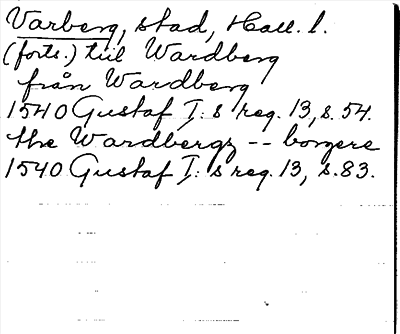 Varberg, stad, Hall. l.
(forts.) till Wardberg
från Wardberg
1540 Gustaf I: s reg. 13, s. 54.
the Wardbergz -- borgere
1540 Gustaf I: s reg. 13, s. 83.